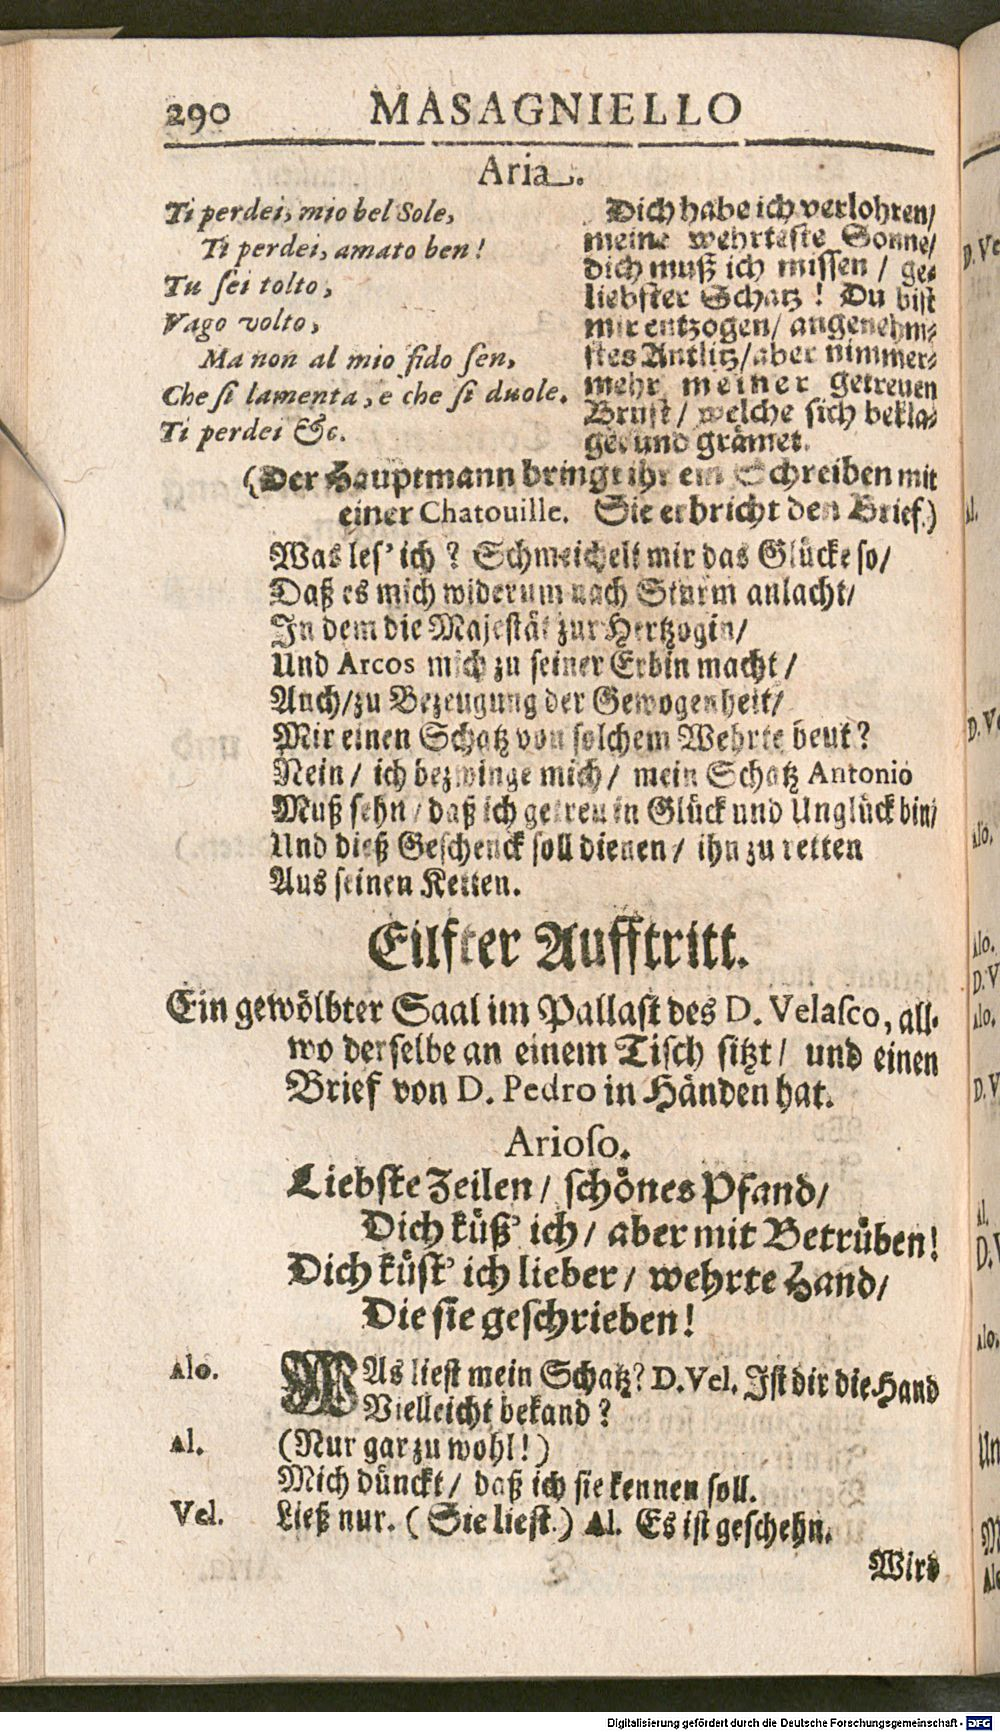 290 MASAGNIELLO
Aria.
Ti perdei, mio bel Sole,
Ti perdei, amato ben!
Tu sei tolto,
Vago volto,
Ma non al mio fido sen,
Che si lamenta, e che si duole.
Ti perdei &c.
Dich habe ich verlohren/
meine wehrteste Sonne/
dich muß ich missen / ge-
liebster Schatz! Du bist
mir entzogen/ angenehm-
stes Antlitz/ aber nimmer-
mehr meiner getreuen
Brust/ welche sich bekla-
get und grämet.
(Der Hauptmann bringt ihr ein Schreiben mit
einer Chatouille. Sie erbricht den Brief.)
Was les' ich? Schmeichelt mir das Glücke so/
Daß es mich widerum nach Sturm anlacht/
In dem die Majestät zur Hertzogin/
Und Arcos mich zu seiner Erbin macht/
Auch/ zu Bezeugung der Gewogenheit/
Mir einen Schatz von solchem Wehrte beut?
Nein/ ich bezwinge mich/ mein Schatz Antonio
Muß sehn/ daß ich getreu in Glück und Unglück bin/
Und dieß Geschenck soll dienen/ ihn zu retten
Aus seinen Ketten.
Eilfter Aufftritt.
Ein gewölbter Saal im Pallast des D. Velasco, all-
wo derselbe an einem Tisch sitzt/ und einen
Brief von D. Pedro in Händen hat.
Arioso.
Liebste Zeilen/ schönes Pfand/
Dich küß' ich/ aber mit Betrüben!
Dich küst' ich lieber/ wehrte Hand/
Die sie geschrieben!
Alo. WAs liest mein Schatz? D. Vel. Ist dir die Hand
Vielleicht bekand?
Al. (Nur gar zu wohl!)
Mich dünckt/ daß ich sie kennen soll.
Vel. Ließ nur. (Sie liest.) Al. Es ist geschehn.
Wird
Digitalisierung gefördert durch die Deutsche Forschungsgemeinschaft - DFG